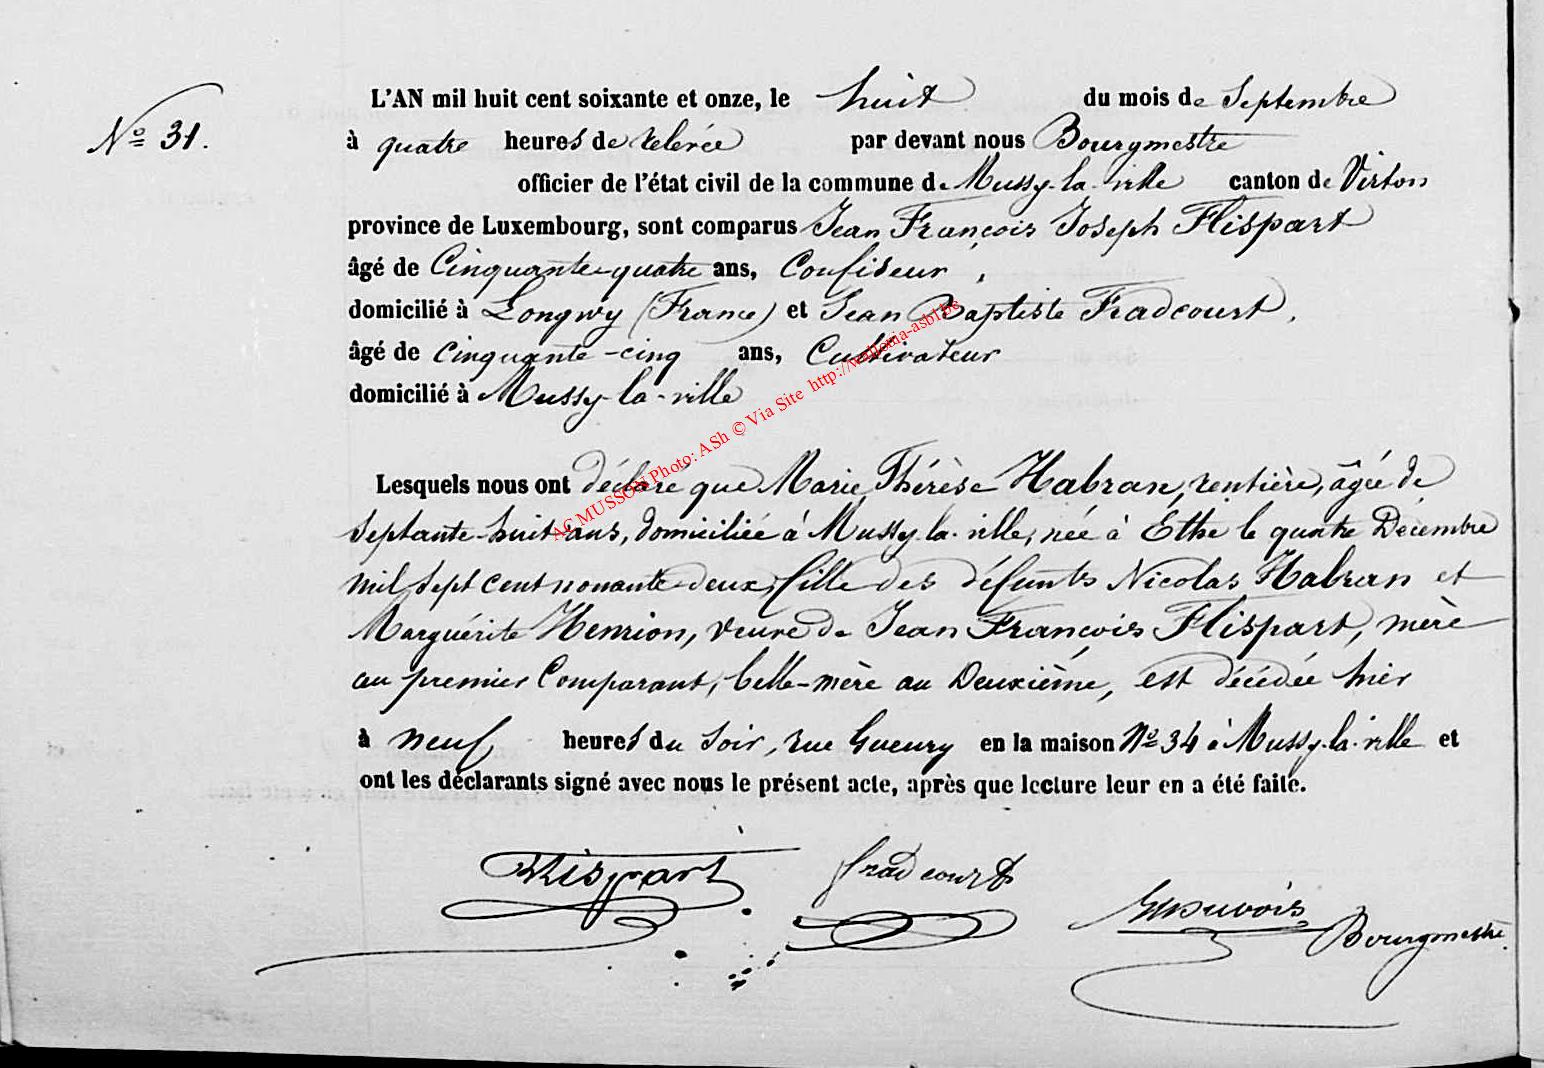 L'AN mil huit cent soixante et onze, le huit du mois de Septembre
No 31.
à quatre heures de relevée par devant nous Bourgmestre
officier de l'état civil de la commune de Mussy-la-ville canton de Virton
province de Luxembourg, sont comparus Jean François Joseph Flispart
âgé de Cinquante-quatre ans, Confiseur,
domicilié à Longwy (France) et Jean Baptiste Fradcourt,
âgé de cinquante-cinq ans, Cultivateur
domicilié à Mussy-la-ville
AC MUSSON Photo: ASh © Via Site http://wallonia-asbl.be
Lesquels nous ont déclaré que Marie Thérèse Habran, rentière, âgée de
septante-huit ans, domiciliée à Mussy-la-ville, née à Ethe le quatre Décembre
mil sept cent nonante-deux, fille des défunts Nicolas Habran et
Marguérite Henrion, veuve de Jean François Flispart, mère
au premier Comparant, belle-mère au Deuxième, est décédée hier
à neuf heures du soir, rue Gueury en la maison No 34 à Mussy-la-ville et
ont les déclarants signé avec nous le présent acte, après que lecture leur en a été faite.
Flispart Fradcourt
Bourgmestre